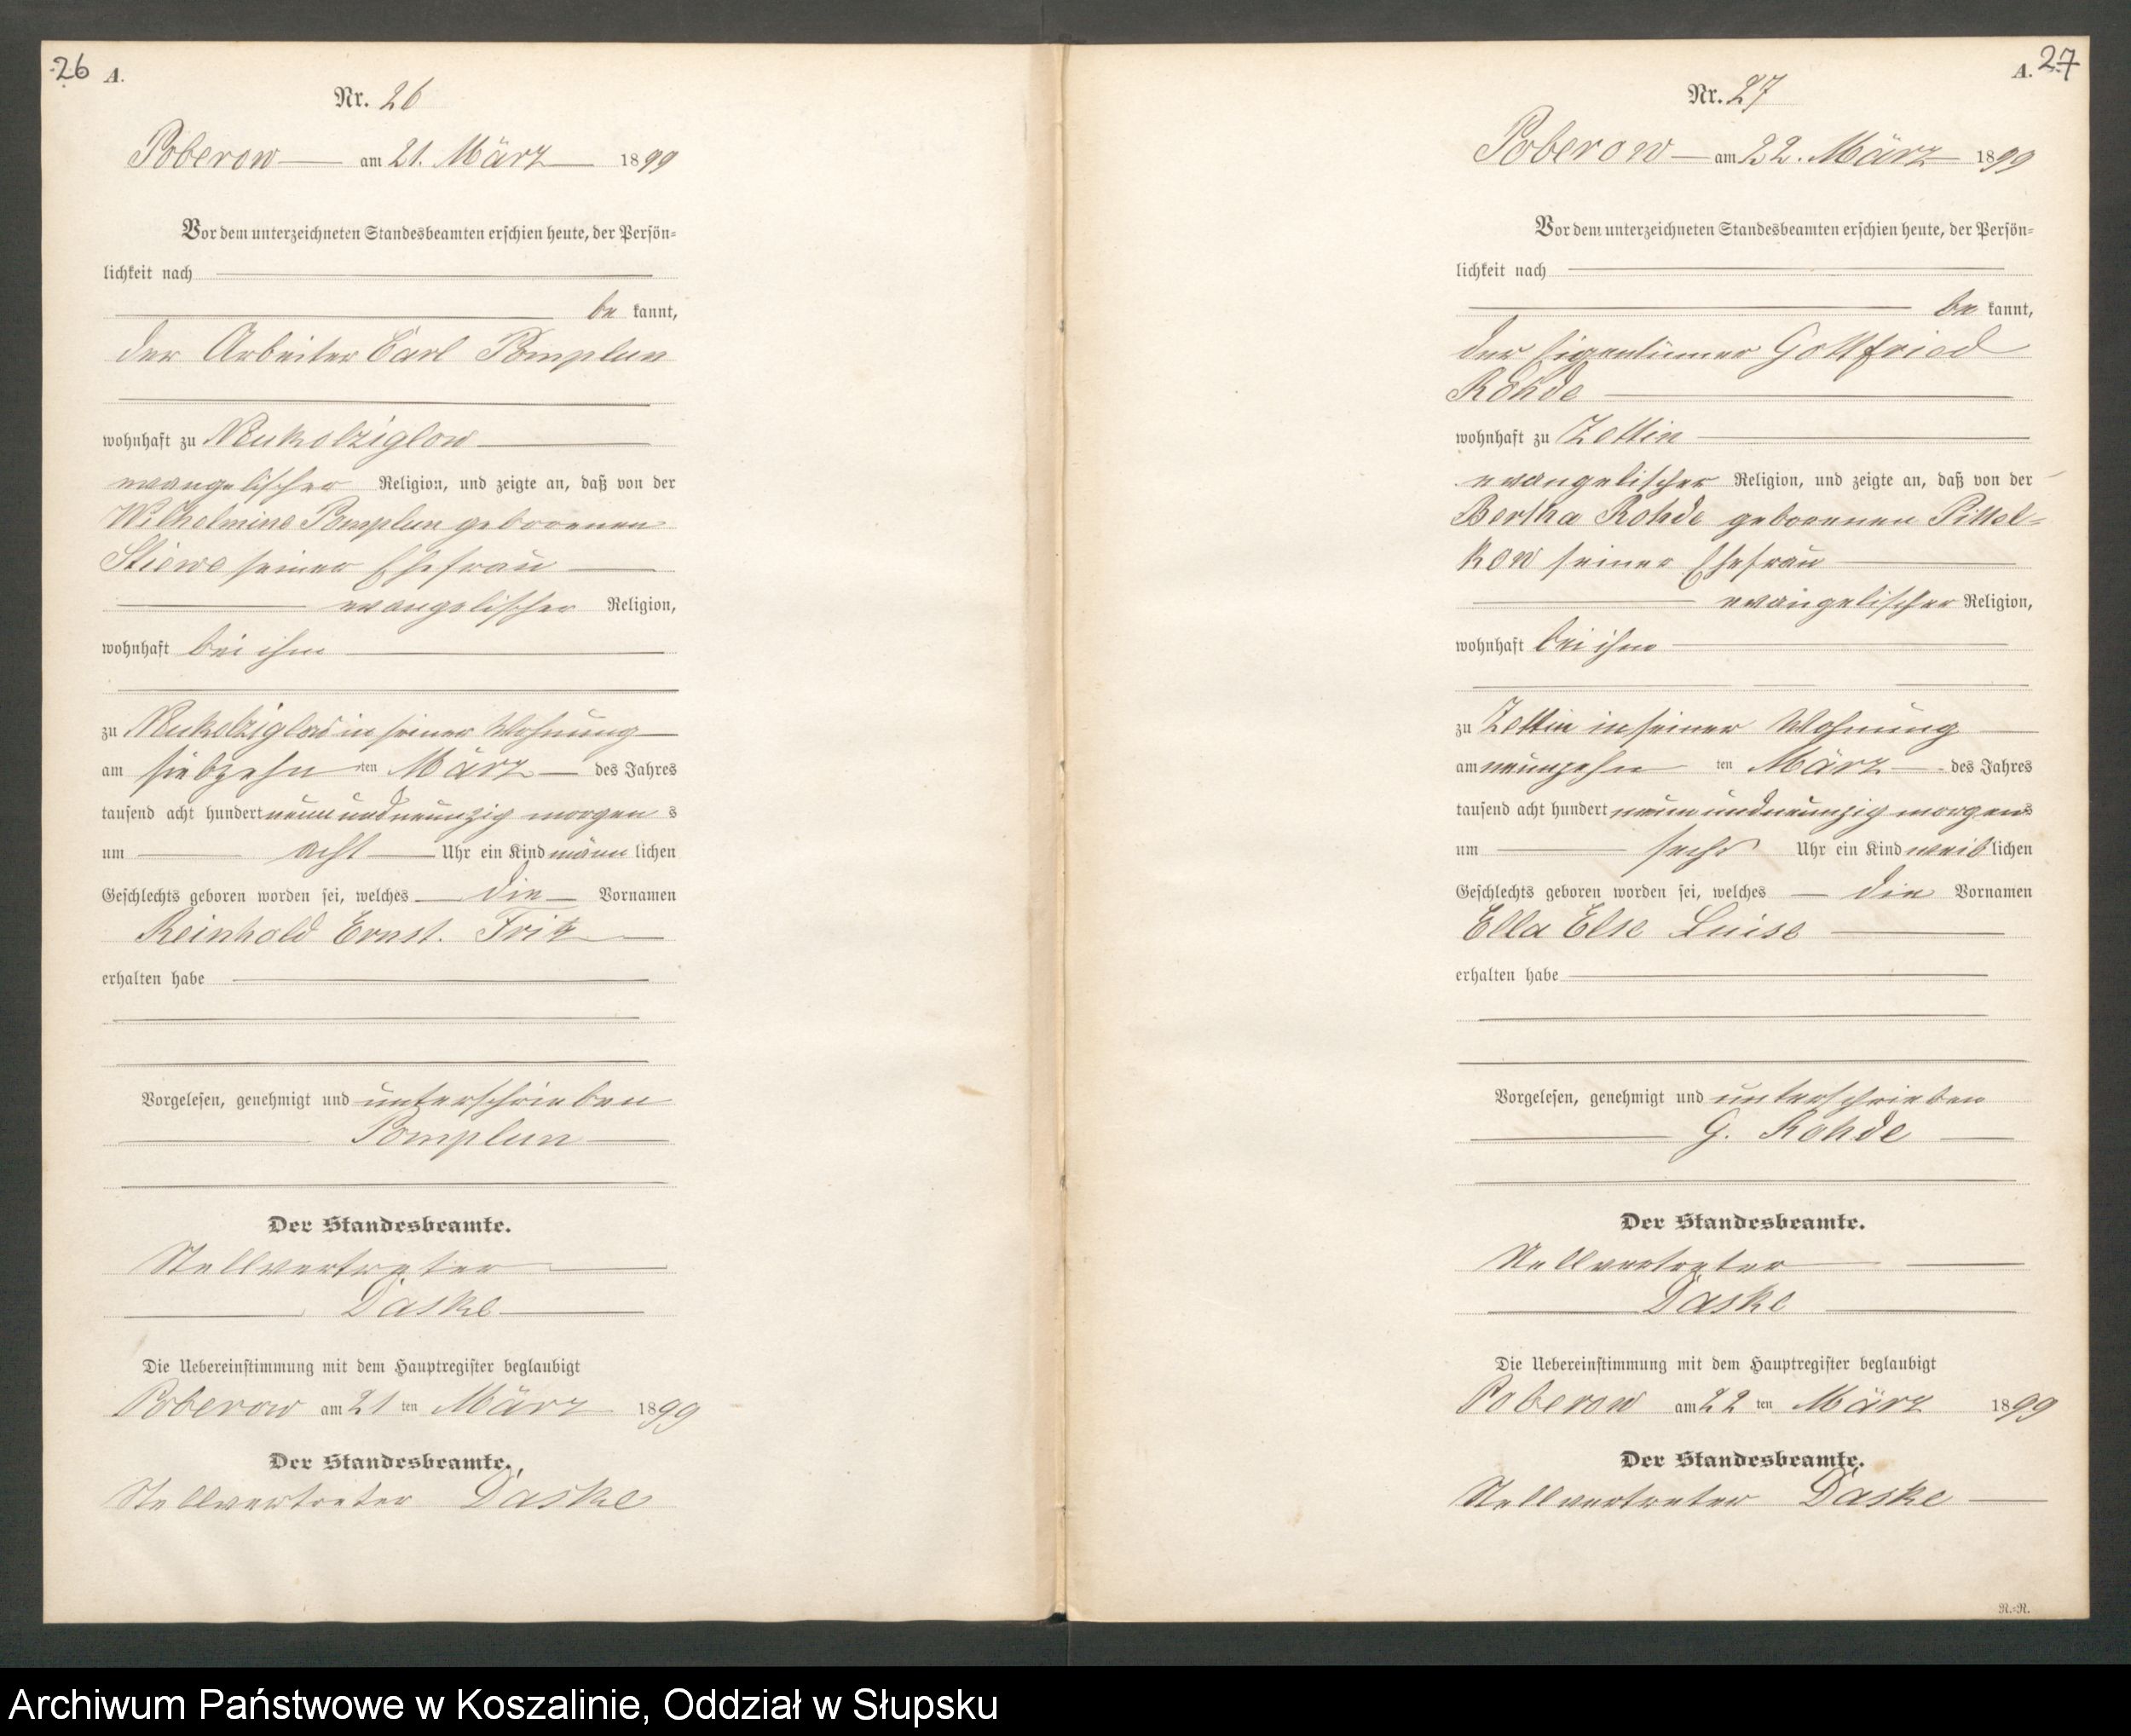 26 A.
Nr. 26
Poberow am 21. März 1899
Vor dem unterzeichneten Standesbeamten erschien heute, der Persön-
lichkeit nach
be kannt,
der Arbeiter Carl Pomplun
wohnhaft zu Neukolziglow
evangelischer Religion, und zeigte an, daß von der
Wilhelmine Pomplun geborenen
Stiewe seiner Ehefrau
evangelischer Religion,
wohnhaft bei ihm
zu Neukolziglow in seiner Wohnung
am siebzehn ten März des Jahres
tausend acht hundert neun und neunzig morgen s
um acht Uhr ein Kind männ lichen
Geschlechts geboren worden sei, welches die Vornamen
Reinhold Ernst. Fritz
erhalten habe
Vorgelesen, genehmigt und unterschrieben
Pomplun
Der Standesbeamte.
Stellvertreter
Daske
Die Uebereinstimmung mit dem Hauptregister beglaubigt
Poberow am 21 ten März 1899
Der Standesbeamte.
Stellvertreter Daske
A. 27
Nr. 27
Poberow am 22. März 1899
Vor dem unterzeichneten Standesbeamten erschien heute, der Persön-
lichkeit nach
be kannt,
der Eigentümer Gottfried
Rohde
wohnhaft zu Zettin
evangelischer Religion, und zeigte an, daß von der
Bertha Rohde geborenen Pittel-
kow seiner Ehefrau
evangelischer Religion,
wohnhaft bei ihm
zu Zettin in seiner Wohnung
am neunzehn ten März des Jahres
tausend acht hundert neun und neunzig morgens
um sechs Uhr ein Kind weib lichen
Geschlechts geboren worden sei, welches die Vornamen
Ella Else Luise
erhalten habe
Vorgelesen, genehmigt und unterschrieben
G. Rohde
Der Standesbeamte.
Stellvertreter
Daske
Die Uebereinstimmung mit dem Hauptregister beglaubigt
Poberow am 22 ten März 1899
Der Standesbeamte.
Stellvertreter Daske
R.-R.
Archiwum Państwowe w Koszalinie, Oddział w Słupsku